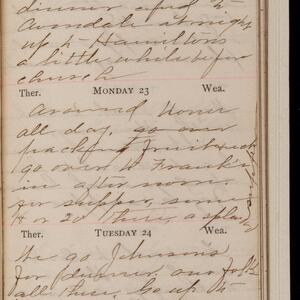 dinner and to
Avondale straight
up to Hamiltons
a little while before
church
Ther. MONDAY 23 Wea.
Around home
all day, go over
go over to Frank's
in after noon.
for supper, some
18 or 20 there, a splendid
Ther. TUESDAY 24 Wea.
We go Johnsons
for dinner, our folks
all there. Go up to